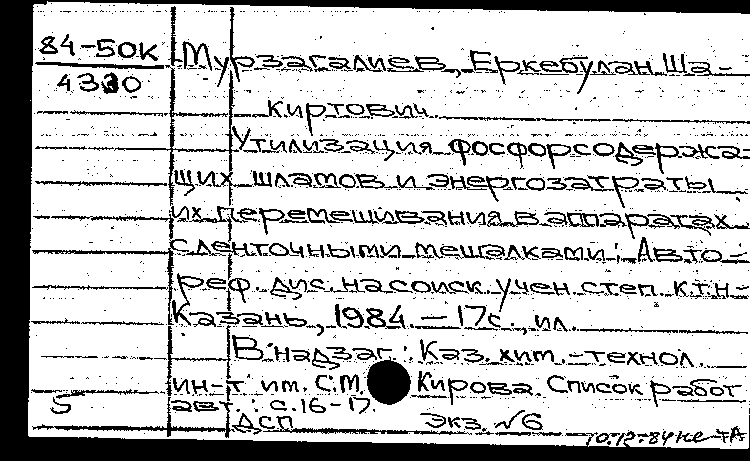 84-50к Мурзагалиев, Еркебулан Ша-
4330 киртович.
Утилизация фосфорсодержа-
щих шламов и энергозатраты
их перемешивания в аппаратах
с ленточными мешалками: Авто-
реф. дис. на соиск. учен. степ. к.т.н-
Казань, 1984. – 17с., ил.
В надзаг.: Каз. хим.-технол.
ин-т им. С.М. Кирова. Список работ
5 авт.: с.16-17.
ДСП Экз. №6
10.12-84